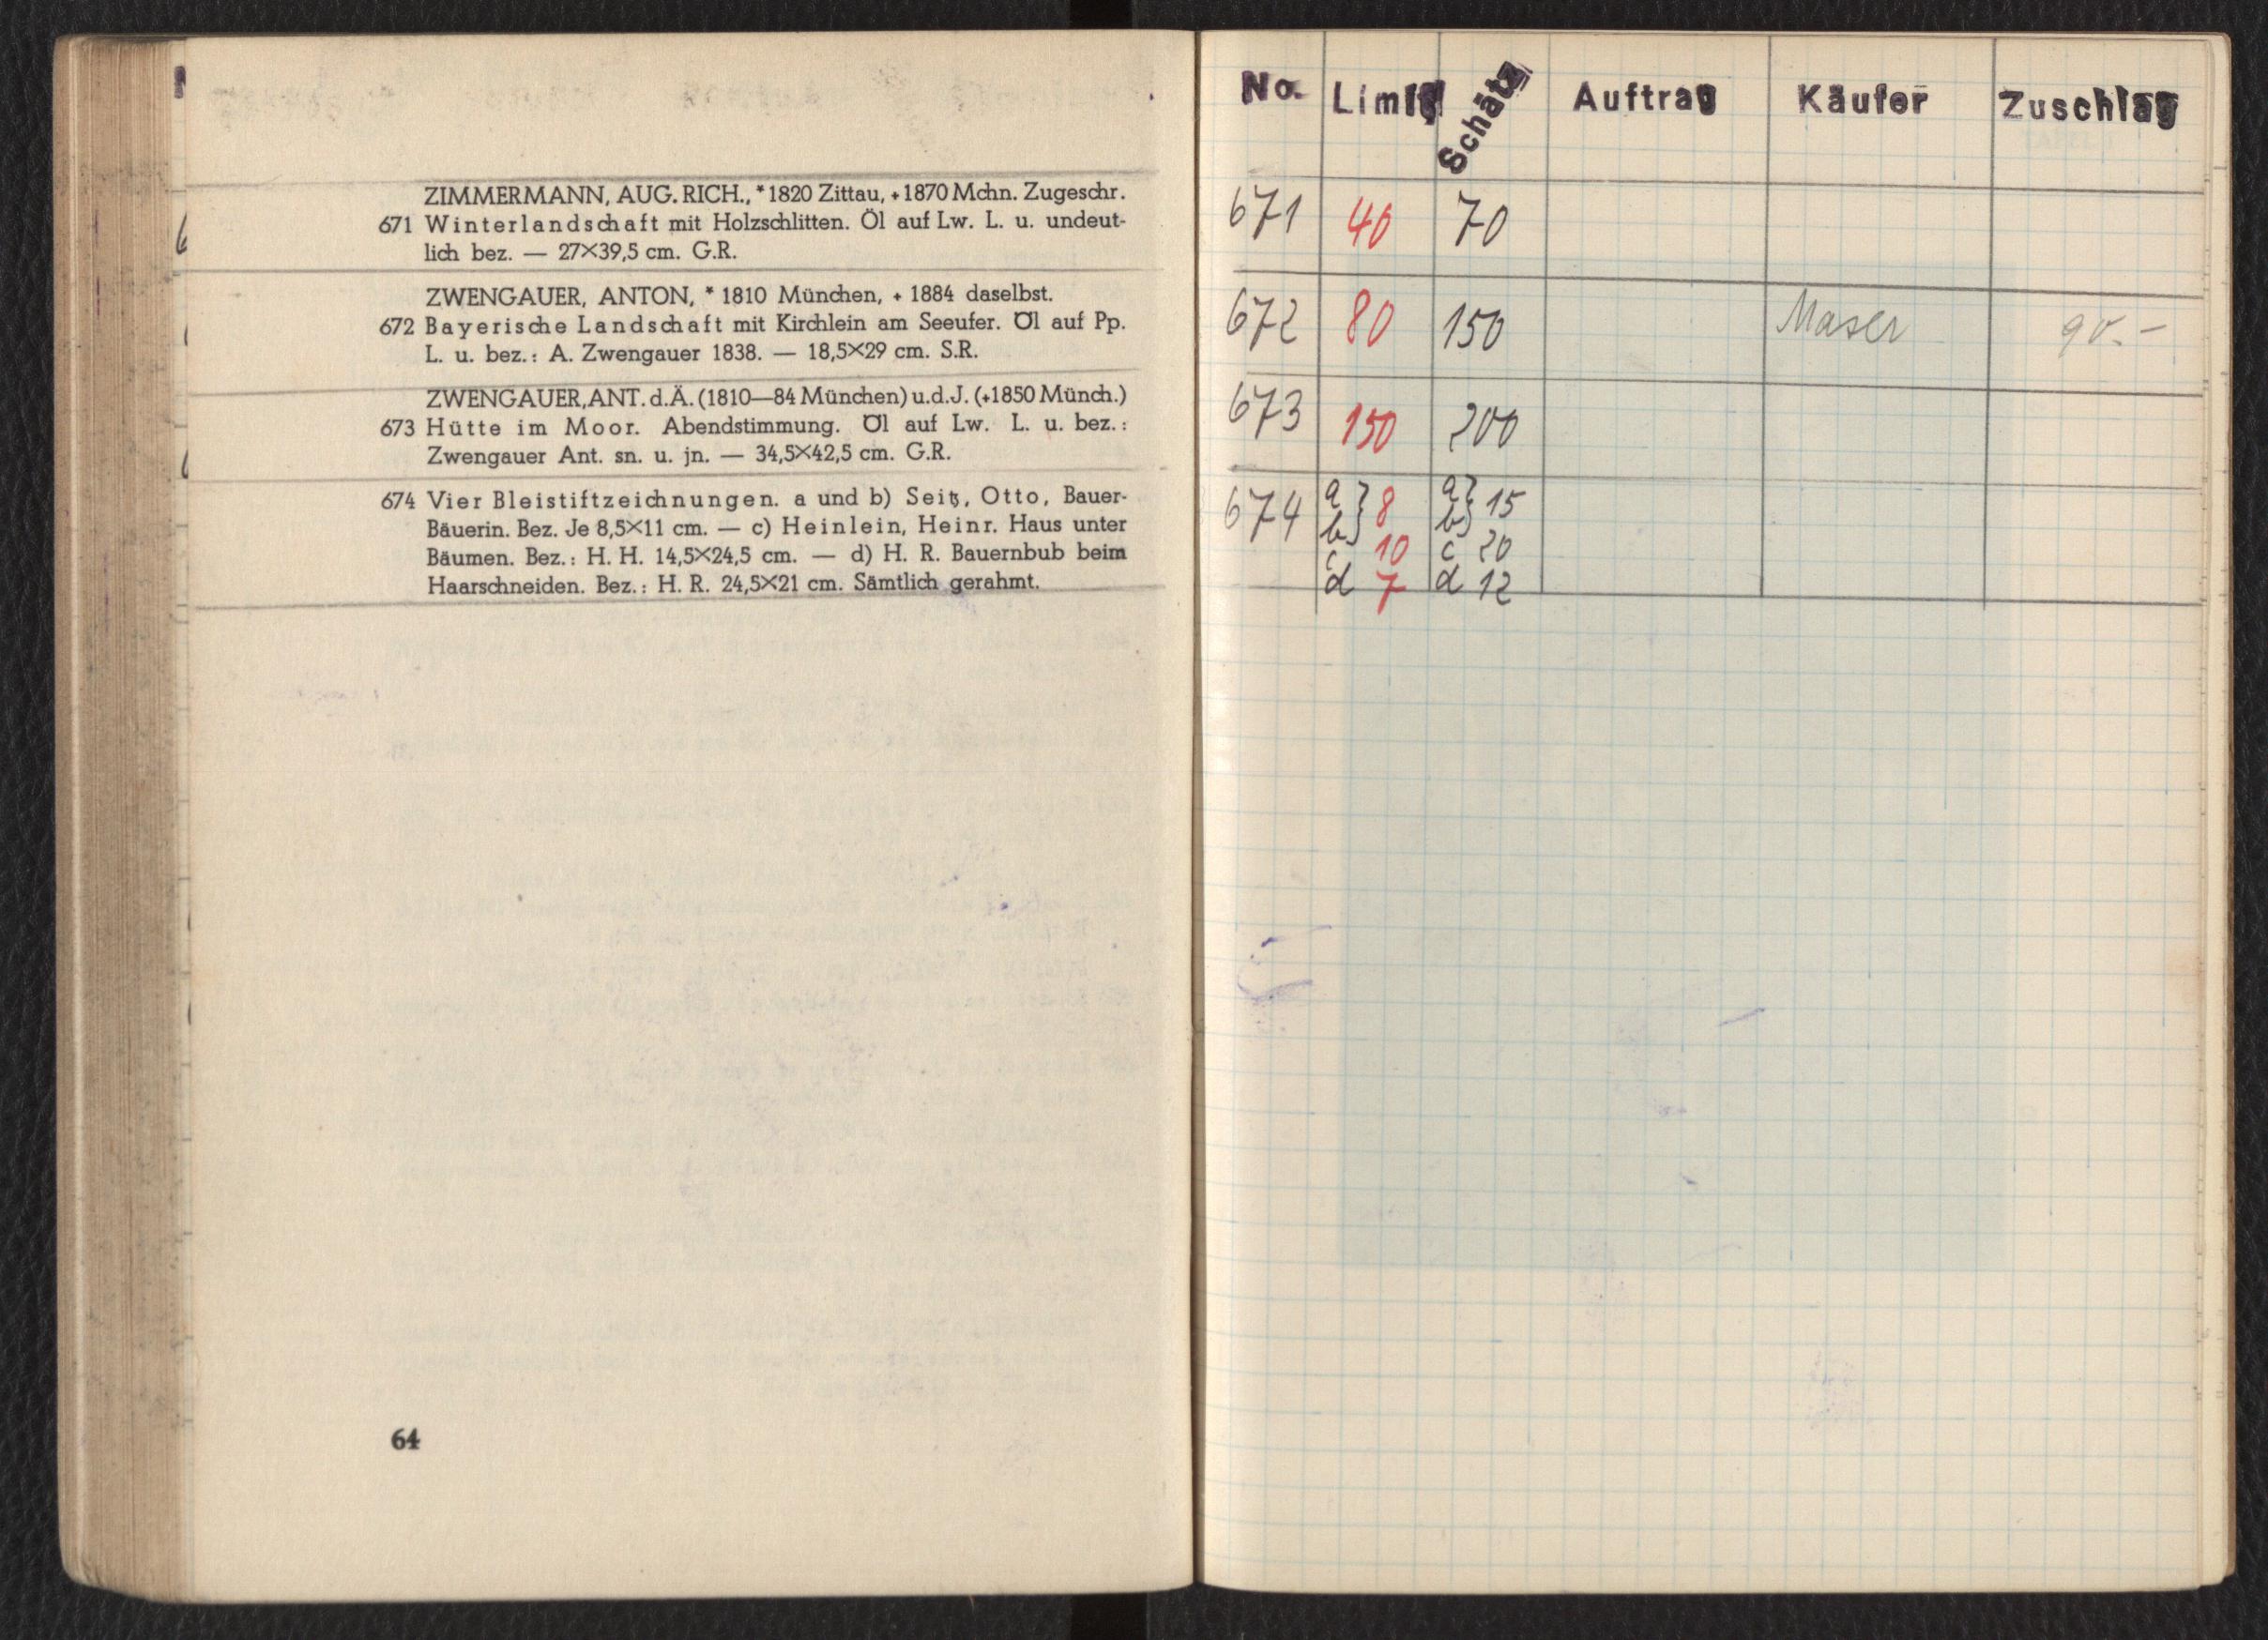 ZIMMERMANN, AUG. RICH., * 1820 Zittau, + 1870 Mchn. Zugeschr.
671 Winterlandschaft mit Holzschlitten. Öl auf Lw. L. u. undeut-
lich bez. — 27×39,5 cm. G.R.
ZWENGAUER, ANTON, * 1810 München, + 1884 daselbst.
672 Bayerische Landschaft mit Kirchlein am Seeufer. Öl auf Pp.
L. u. bez.: A. Zwengauer 1838. — 18,5×29 cm. S.R.
ZWENGAUER, ANT. d. Ä. (1810—84 München) u. d. J. (+1850 Münch.)
673 Hütte im Moor. Abendstimmung. Öl auf Lw. L. u. bez.:
Zwengauer Ant. sn. u. jn. — 34,5×42,5 cm. G.R.
674 Vier Bleistiftzeichnungen. a und b) Seitz, Otto, Bauer-
Bäuerin. Bez. Je 8,5×11 cm. — c) Heinlein, Heinr. Haus unter
Bäumen. Bez.: H. H. 14,5×24,5 cm. — d) H. R. Bauernbub beim
Haarschneiden. Bez.: H. R. 24,5×21 cm. Sämtlich gerahmt.
64
No. Limit Schätz Auftrag Käufer Zuschlag
671 40 70
672 80 150 Maser 90.-
673 150 200
674 a} 8 a} 15
b} b}
c 10 c 20
d 7 d 12